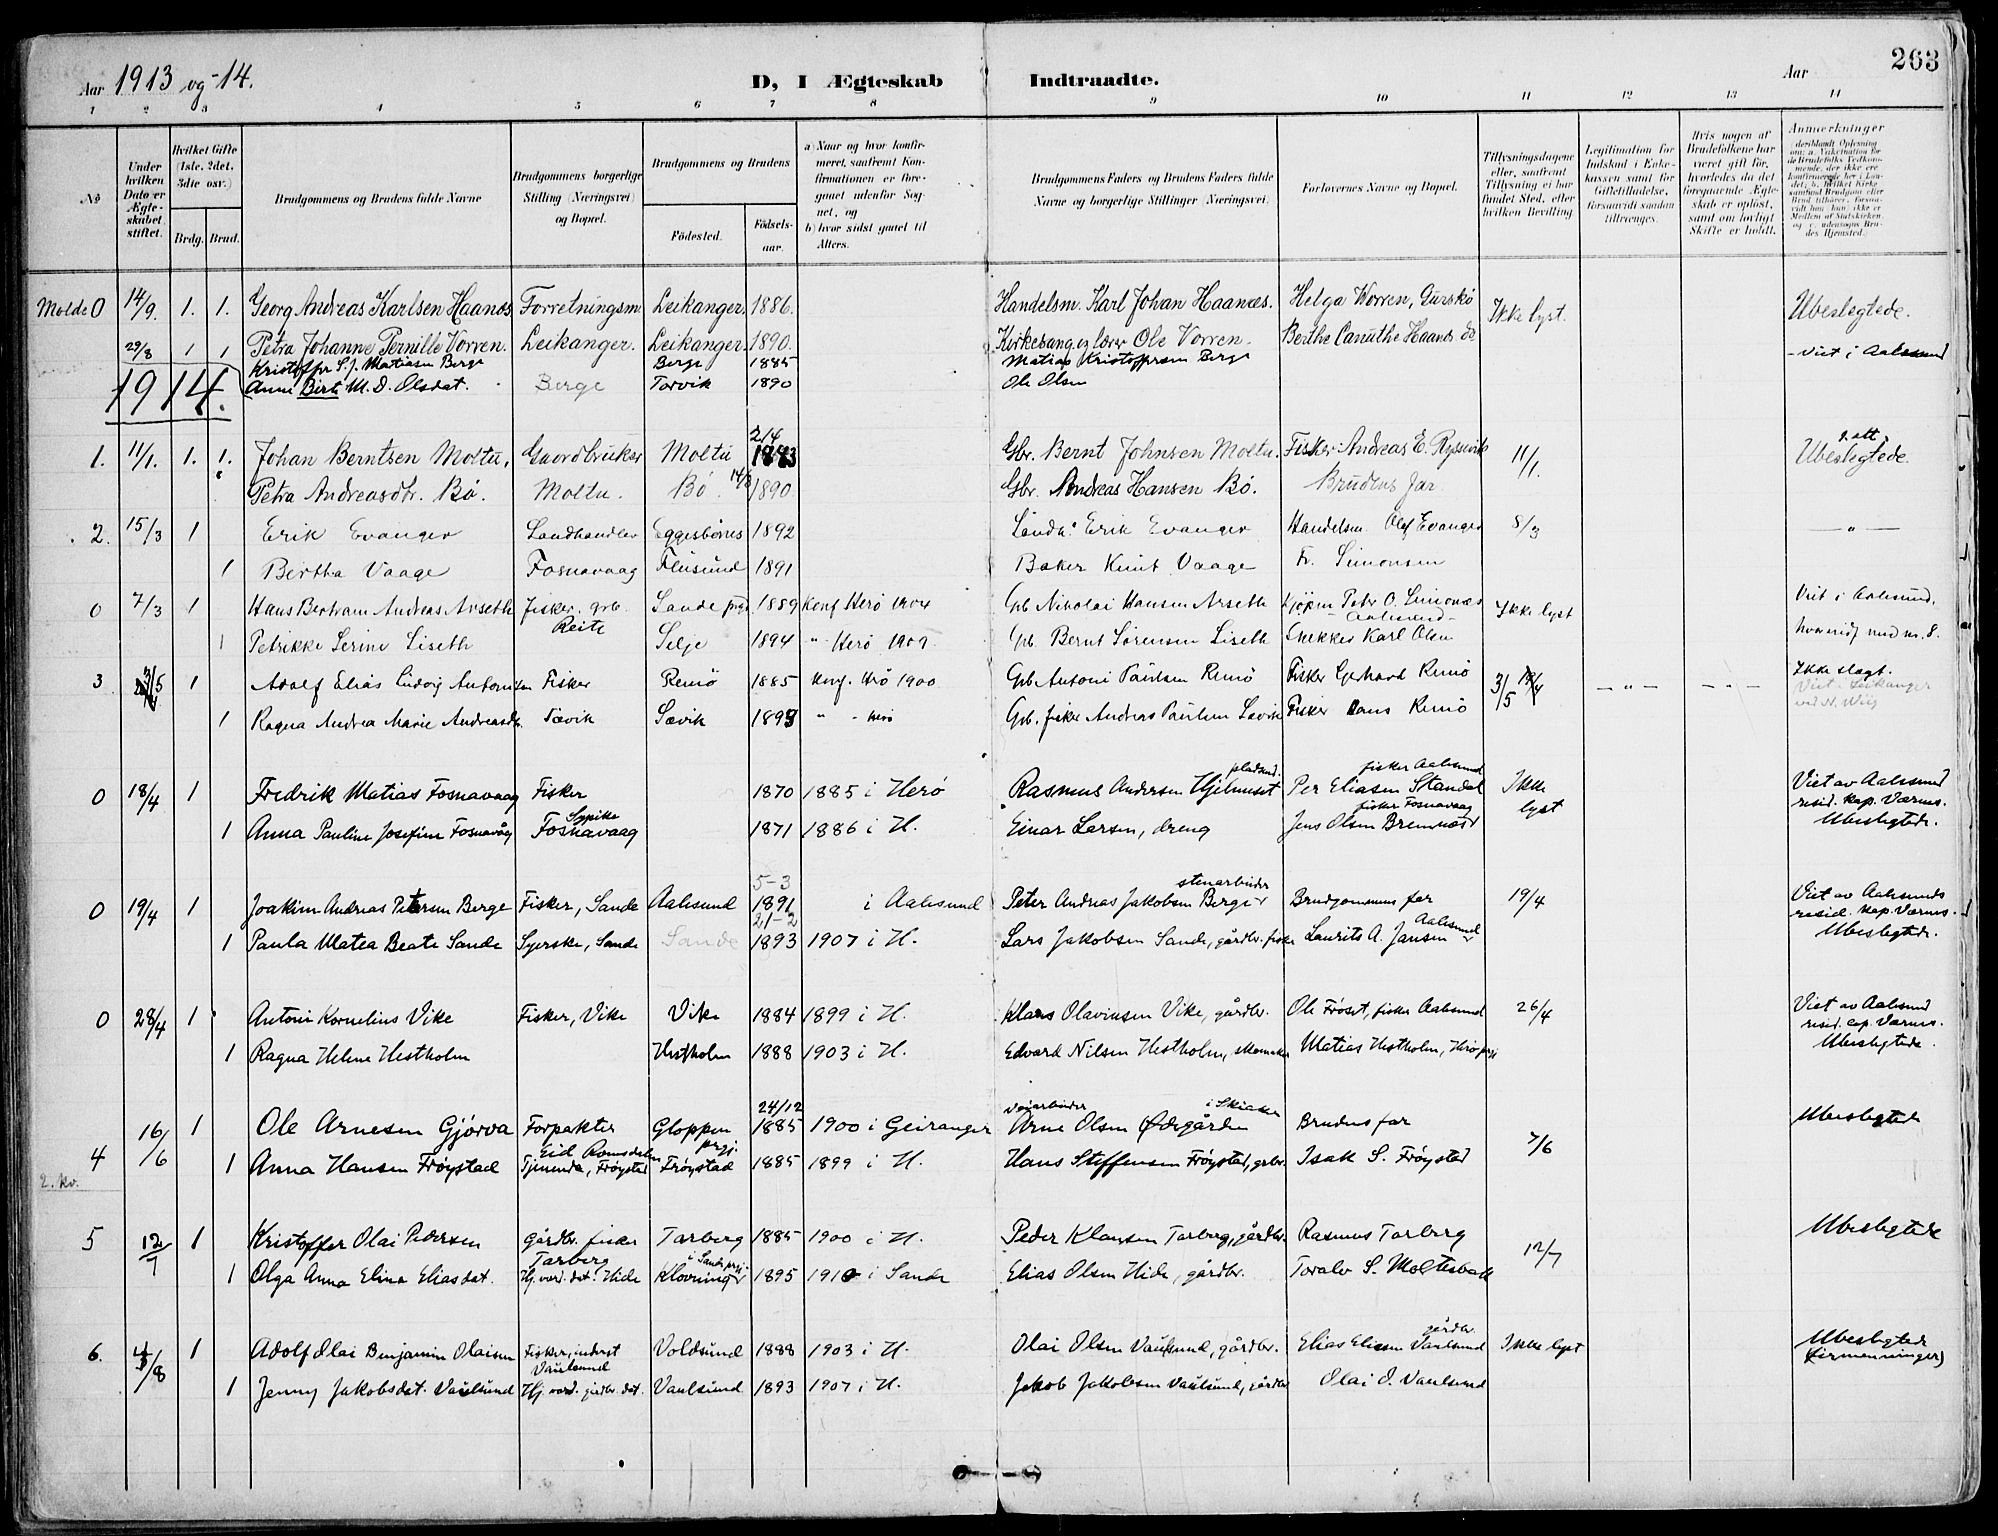 Aar 1913 og -14.
D, I Ægteskab Indtraadte.
Aar
263
1 2 3 4 5 6 7 8 9 10 11 12 13 14
№
Under hvilken Dato er Ægteskabet stiftet.
Hvilket Gifte (1ste, 2det, 3die osv.)
Brdg. Brud.
Brudgommens og Brudens fulde Navne
Brudgommens borgerlige Stilling (Næringsvei) og Bopæl.
Brudgommens og Brudens
Fødested.
Fødsels-aar.
a) Naar og hvor konfirmeret, saafremt Konfirmationen er foregaaet udenfor Sognet, og
b) hvor sidst gaaet til Alters.
Brudgommens Faders og Brudens Faders fulde Navne og borgerlige Stillinger (Næringsvei).
Forlovernes Navne og Bopæl.
Tillysningsdagene eller, saafremt Tillysning ei har fundet Sted, efter hvilken Bevilling
Legitimation for Indskud i Enkekassen samt for Giftetilladelse, forsaavidt saadan tiltrænges.
Hvis nogen af Brudefolkene har været gift før, hvorledes da det foregaaende Ægteskab er opløst, samt om lovligt Skifte er holdt.
Anmærkninger
Molde 0 14/9. 1. 1. Georg Andreas Karlsen Haanæs Forretningsm. Leikanger. 1886. Handelsm. Karl Johan Haanæs. Helga Worren, Gurskø Ikke lyst. Ubeslegtede.
Petra Johanne Pernille Vorren. Leikanger. Leikanger. 1890. Kirkesang. og lærer Ole Vorren. Berthe Canuthe Haanæs do
29/8 1 1 Kristoffer S. J. Mathiasen Berge Berge 1885 Matias Kristoffersen Berge - Viet i Aalesund
Anne Berte M. D. Olsdat. Berge Torvik 1890 Ole Olsen
1914.
1. 11/1. 1. 1. Johan Berntsen Moltu. Gaardbruker Moltu 2/4 1883 Gbr. Bernt Johnsen Moltu. Fisker Andreas E. Rysevik 11/1. Ubeslegtede.
Petra Andreasdtr. Bø. Moltu. Bø. 14/8 1890. Gbr. Andreas Hansen Bø. Brudens far.
2. 15/3 1 Erik Evanger Landhandler Eggesbønes 1892 Landh. Erik Evanger Handelsm. Olaf Evanger 8/3 — " —
1 Bertha Vaage Fosnavaag Flusund 1891 Baker Knut Vaage Fr. Simonsen
0 7/3 1 Hans Bertram Andreas Arseth Fisker. grb. Reite Sande prgj. 1889 Konf Herø 1904 Grb Nikolai Hansen Arseth Kjøpm Petr O. Simonæs Aalesund - Ikke lyst Viet i Aalesund.
1 Petrikke Serine Liseth Selje 1894 " Herø 1909. Grb. Bernt Sørensen Liseth Snekker Karl Olsen
3 3/5 1 Adolf Elias Ludvig Antonisen Fisker Remø 1885 Konf. Herø 1900 Grb Antoni Paulsen Remø Fisker Gerhard Remø 3/5 — " — — " — Ikke slegt. Viet i Leikanger
1 Ragna Andrea Marie Andreasdtr. Sævik Sævik 1893 " - Herø Grb. fisker Andreas Paulsen Sævik Fisker Hans Remø
0 18/4 1 Fredrik Matias Fosnavaag Fisker 1870 1885 i Herø Rasmus Andersen Hjelmeset pladsmd. Per Eliasen Standal fisker Aalesund Ikke lyst Viet av Aalesund resid. kap. Værnes. Ubeslegtede.
1 Anna Pauline Josefine Fosnavåg Fosnavaag 1871 1886 i H. Einar Larsen, dreng Jens Olsen Bremnes fisker Fosnavaag
0 19/4 1 Joakim Andreas Petersen Berge Fisker, Sande Aalesund 5-3 1891 i Aalesund Peter Andreas Jakobsen Berge stenarbeider Brudgommens far 19/4 Viet av Aalesunds resid. kap. Værnes. Ubeslegtede.
1 Paula Matea Beate Sande Syerske, Sande Sande 21-2 1893 1907 i H. Lars Jakobsen Sande, gårdbr. fisker Laurits A. Jansen Aalesund
0 28/4 1 Antoni Kornelius Vike Fisker, Vike Vike 1884 1899 i H. Klaus Olavinsen Vike, gårdbr. Ole Frøset, fisker Aalesund 26/4 Viet av Aalesund resid. cap. Værnes. Ubeslegtede.
1 Ragna Heline Hestholm Hestholm 1888 1903 i H. Edvard Nilsen Hestholm, skomaker Matias Hestholm, Herø prgj
4 16/6 1 Ole Arnesen Gjørva Forpakter Eid Romsdalen Gloppen prgj. 24/12 1885 1900 i Geiranger Arne Olsen Ødegården veiarbeider Brudens far 7/6 Ubeslegtede
2. kv. 1 Anna Hansen Frøystad Tjenende, Frøystad Frøystad 1885 1899 i H. Hans Steffensen Frøystad, grbr. Isak S. Frøystad
5 12/7 1 Kristoffer Olai Pedersen gårdbr. fisker Tarberg Tarberg 1885 1900 i H. Peder Klausen Tarberg, gårdbr. Rasmus Tarberg 12/7 Ubeslegtede
1 Olga Anna Elina Eliasdat. Hj.værd. dat. Hide Kløvning i Sande prgj. 1895 1910 i Sande Elias Olsen Hide, gårdbr. Toralv S. Moltubakk
6. 4/8 1 Adolf Olai Benjamin Olaisen Fisker, inderst Vaulsund Voldsund 1888 1903 i H. Olai Olsen Vaulsund, gårdbr. Elias Eliasen Vaulsund gårdbr. Ikke lyst Ubeslegtede (firmenninger)
1 Jenny Jakobsdat. Vaulsund Hj. værd. gårdbr. dat. Vaulsund. 1893 1907 i H. Jakob Jakobsen Vaulsund, gårdbr Olai O. Vaulsund